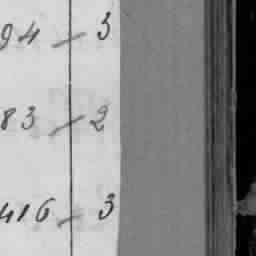 94 - 3
83 - 2
416 - 3